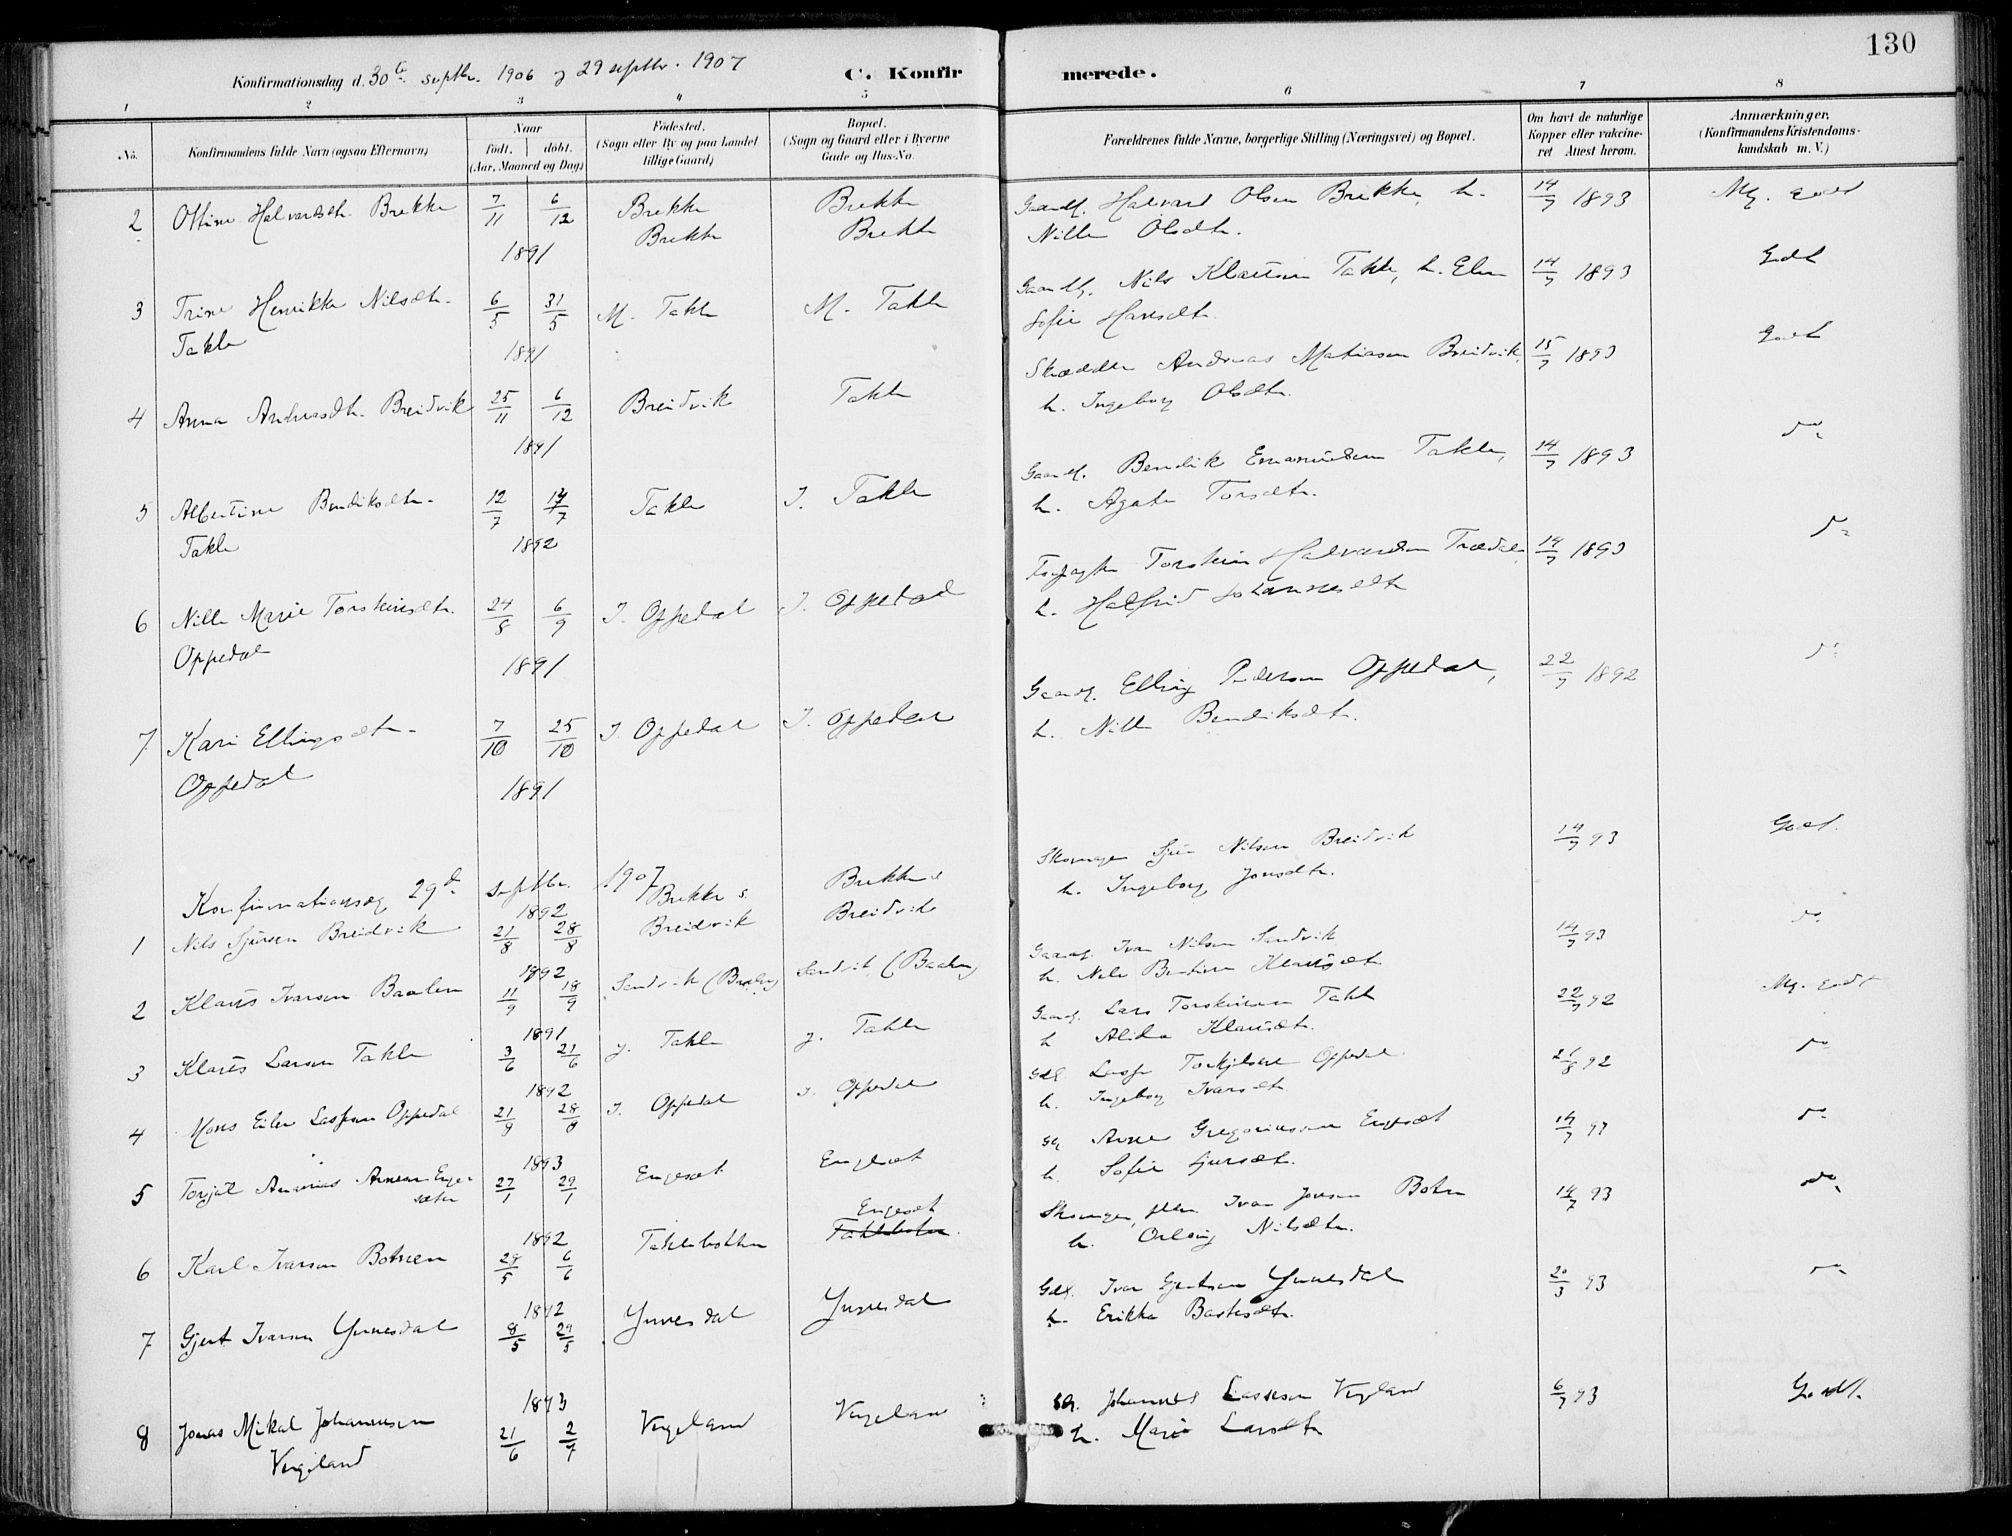 130
Konfirmationsdag d. 30te septbr. 1906 og 29 septbr. 1907
C. Konfirmerede.
1 2 3 4 5 6 7 8
No. Konfirmandens fulde Navn (ogsaa Efternavn) Naar født. døbt. (Aar, Maaned og Dag) Fødested. (Sogn eller By og paa Landet tillige Gaard) Bopæl. (Sogn og Gaard eller i Byerne Gade og Hus-No. Forældrenes fulde Navne, borgerlige Stilling (Næringsvei) og Bopæl. Om havt de naturlige Kopper eller vaccineret Attest herom. Anmærkninger. (Konfirmandens Kristendomskundskab m. V.)
2 Ottine Halvardsdtr. Brekke 7/11 6/12 Brekke Brekke Gaardbr. Halvard Olsen Brekke, h. 14/7 1893 Mg. godt
1891 Brekke Brekke Nille Olsdtr.
3 Trine Henrikke Nilsdtr. 6/5 31/5 M. Takle M. Takle Gaardbr. Nils Klausen Takle, h. Elen 14/7 1893 Godt
Takle 1891 Sofie Hansdtr.
4 Anna Andreasdtr. Breidvik 25/11 6/12 Breidvik Takle Skrædder Andreas Matiasen Breidvik, 15/7 1893 Godt
1891 h. Ingeborg Olsdtr.
5 Albertine Bendiksdtr. 12/7 17/7 Takle I. Takle Gaardbr. Bendik Emanuelsen Takle, 14/7 1893 do
Takle 1892 h. Agate Torsdtr.
6 Nille Marie Torsteinsdtr. 24/8 6/9 I. Oppedal I. Oppedal Torstein Halvardsen Trædal, 14/7 1893 do
Oppedal 1891 h. Halfrid Johannesdtr
7 Kari Ellingsdtr. 7/10 25/10 I. Oppedal I. Oppedal Gaardbr. Elling Pedersen Oppedal, 22/7 1892 do
Oppedal 1891 h. Nille Bendiksdtr.
Konfirmationsdag 29de septbr. 1907
1 Nils Sjursen Breidvik 1892 21/8 28/8 Brekke s. Breidvik Brekke s Breidvik Skomager Sjur Nilsen Breidvik 14/7 93 Godt.
h. Ingeborg Jonsdtr.
2 Klaus Ivarsen Baalen 1892 11/9 18/9 Sandvik (Baalen) Sandvik (Baalen) Gaardbr. Ivar Nilsen Sandvik 14/7 93 do
h. Nille Klausdtr.
3 Klaus Larsen Takle 1891 3/6 21/6 y. Takle y. Takle Gaardbr. Lars Torsteinsen Takle 22/7 92 Mg. godt
h Alida Klausdtr.
4 Mons Eiler Lassesen Oppedal 1892 21/8 28/8 I. Oppedal I. Oppedal Gdbr. Lasse Torkjelsen Oppedal 92 do
h. Ingeborg Ivarsdtr
5 Torjal Andreas Arnesen Engesæter 1893 27/1 29/1 Engesæt Engesæt Gbr Arne Gregoriussen Engesæt 14/7 97 do
h. Sofie Sjursdtr.
6 Karl Ivarsen Botnen 1892 29/5 6/6 Taklebotten Engesæt Taklebotn. Skomager, Ivar Jonsen Botn 14/7 93 do
h. Nilsdtr.
7 Gjert Ivarsen Ynnesdal 1892 8/5 29/5 Ynnesdal Ynnesdal Gdbr. Ivar Gjertsen Ynnesdal 20/3 93 do
h. Erikka Bastesdtr.
8 Jonas Mikal Johannesen 1893 21/6 2/7 Vergeland Vergeland Gbr. Johannes Lassesen Vergeland 6/7 93 Godt.
Vergeland h. Marie Larsdtr